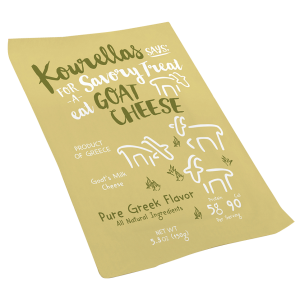 Kourellas SAYS:
FOR Savory Treat
-A-
eat GOAT
CHEESE
PRODUCT
OF GREECE
Goat's Milk
Cheese
Pure Greek Flavor
All Natural Ingredients
Protein Cal
5g 90
Per Serving
NET WT
5.3oz (150g)